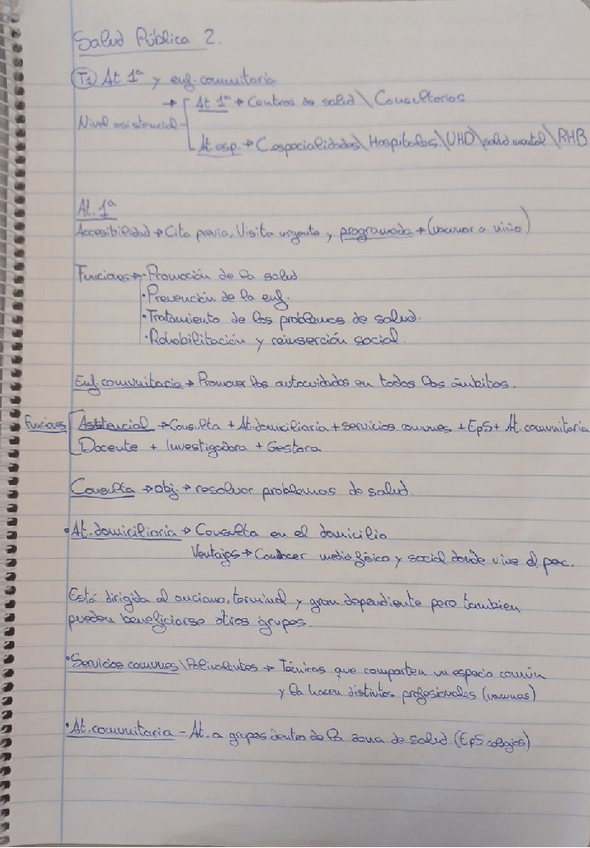 Salud Pública 2.
T1 At 1ª y enf. comunitaria
Nivel asistencial → At 1ª → Centros de salud \ Consultorios
At. esp. → C. especialidades \ Hospitales \ UHD \ salud mental \ RHB
At. 1ª
Accesibilidad → Cita previa, Visita urgente y programada → (vacunar a niño)
Funciones → · Promoción de la salud
· Prevención de la enf.
· Tratamiento de los problemas de salud.
· Rehabilitación y reinserción social.
Enf. comunitaria → Promover los autocuidados en todos los ámbitos.
Funciones Asistencial → Consulta + At. domiciliaria + servicios comunes + EpS + At. comunitaria
Docente + Investigadora + Gestora
Consulta → obj. → resolver problemas de salud.
· At. domiciliaria → Consulta en el domicilio
Ventajas → Conocer medio físico y social donde vive el pac.
Está dirigida al anciano, terminal y gran dependiente pero tambien
pueden beneficiarse otros grupos.
· Servicios comunes \ Polivalentes → Técnicas que comparten un espacio común
y la hacen distintos profesionales (vacunas)
· At. comunitaria - At. a grupos dentro de la zona de salud (EpS colegios)